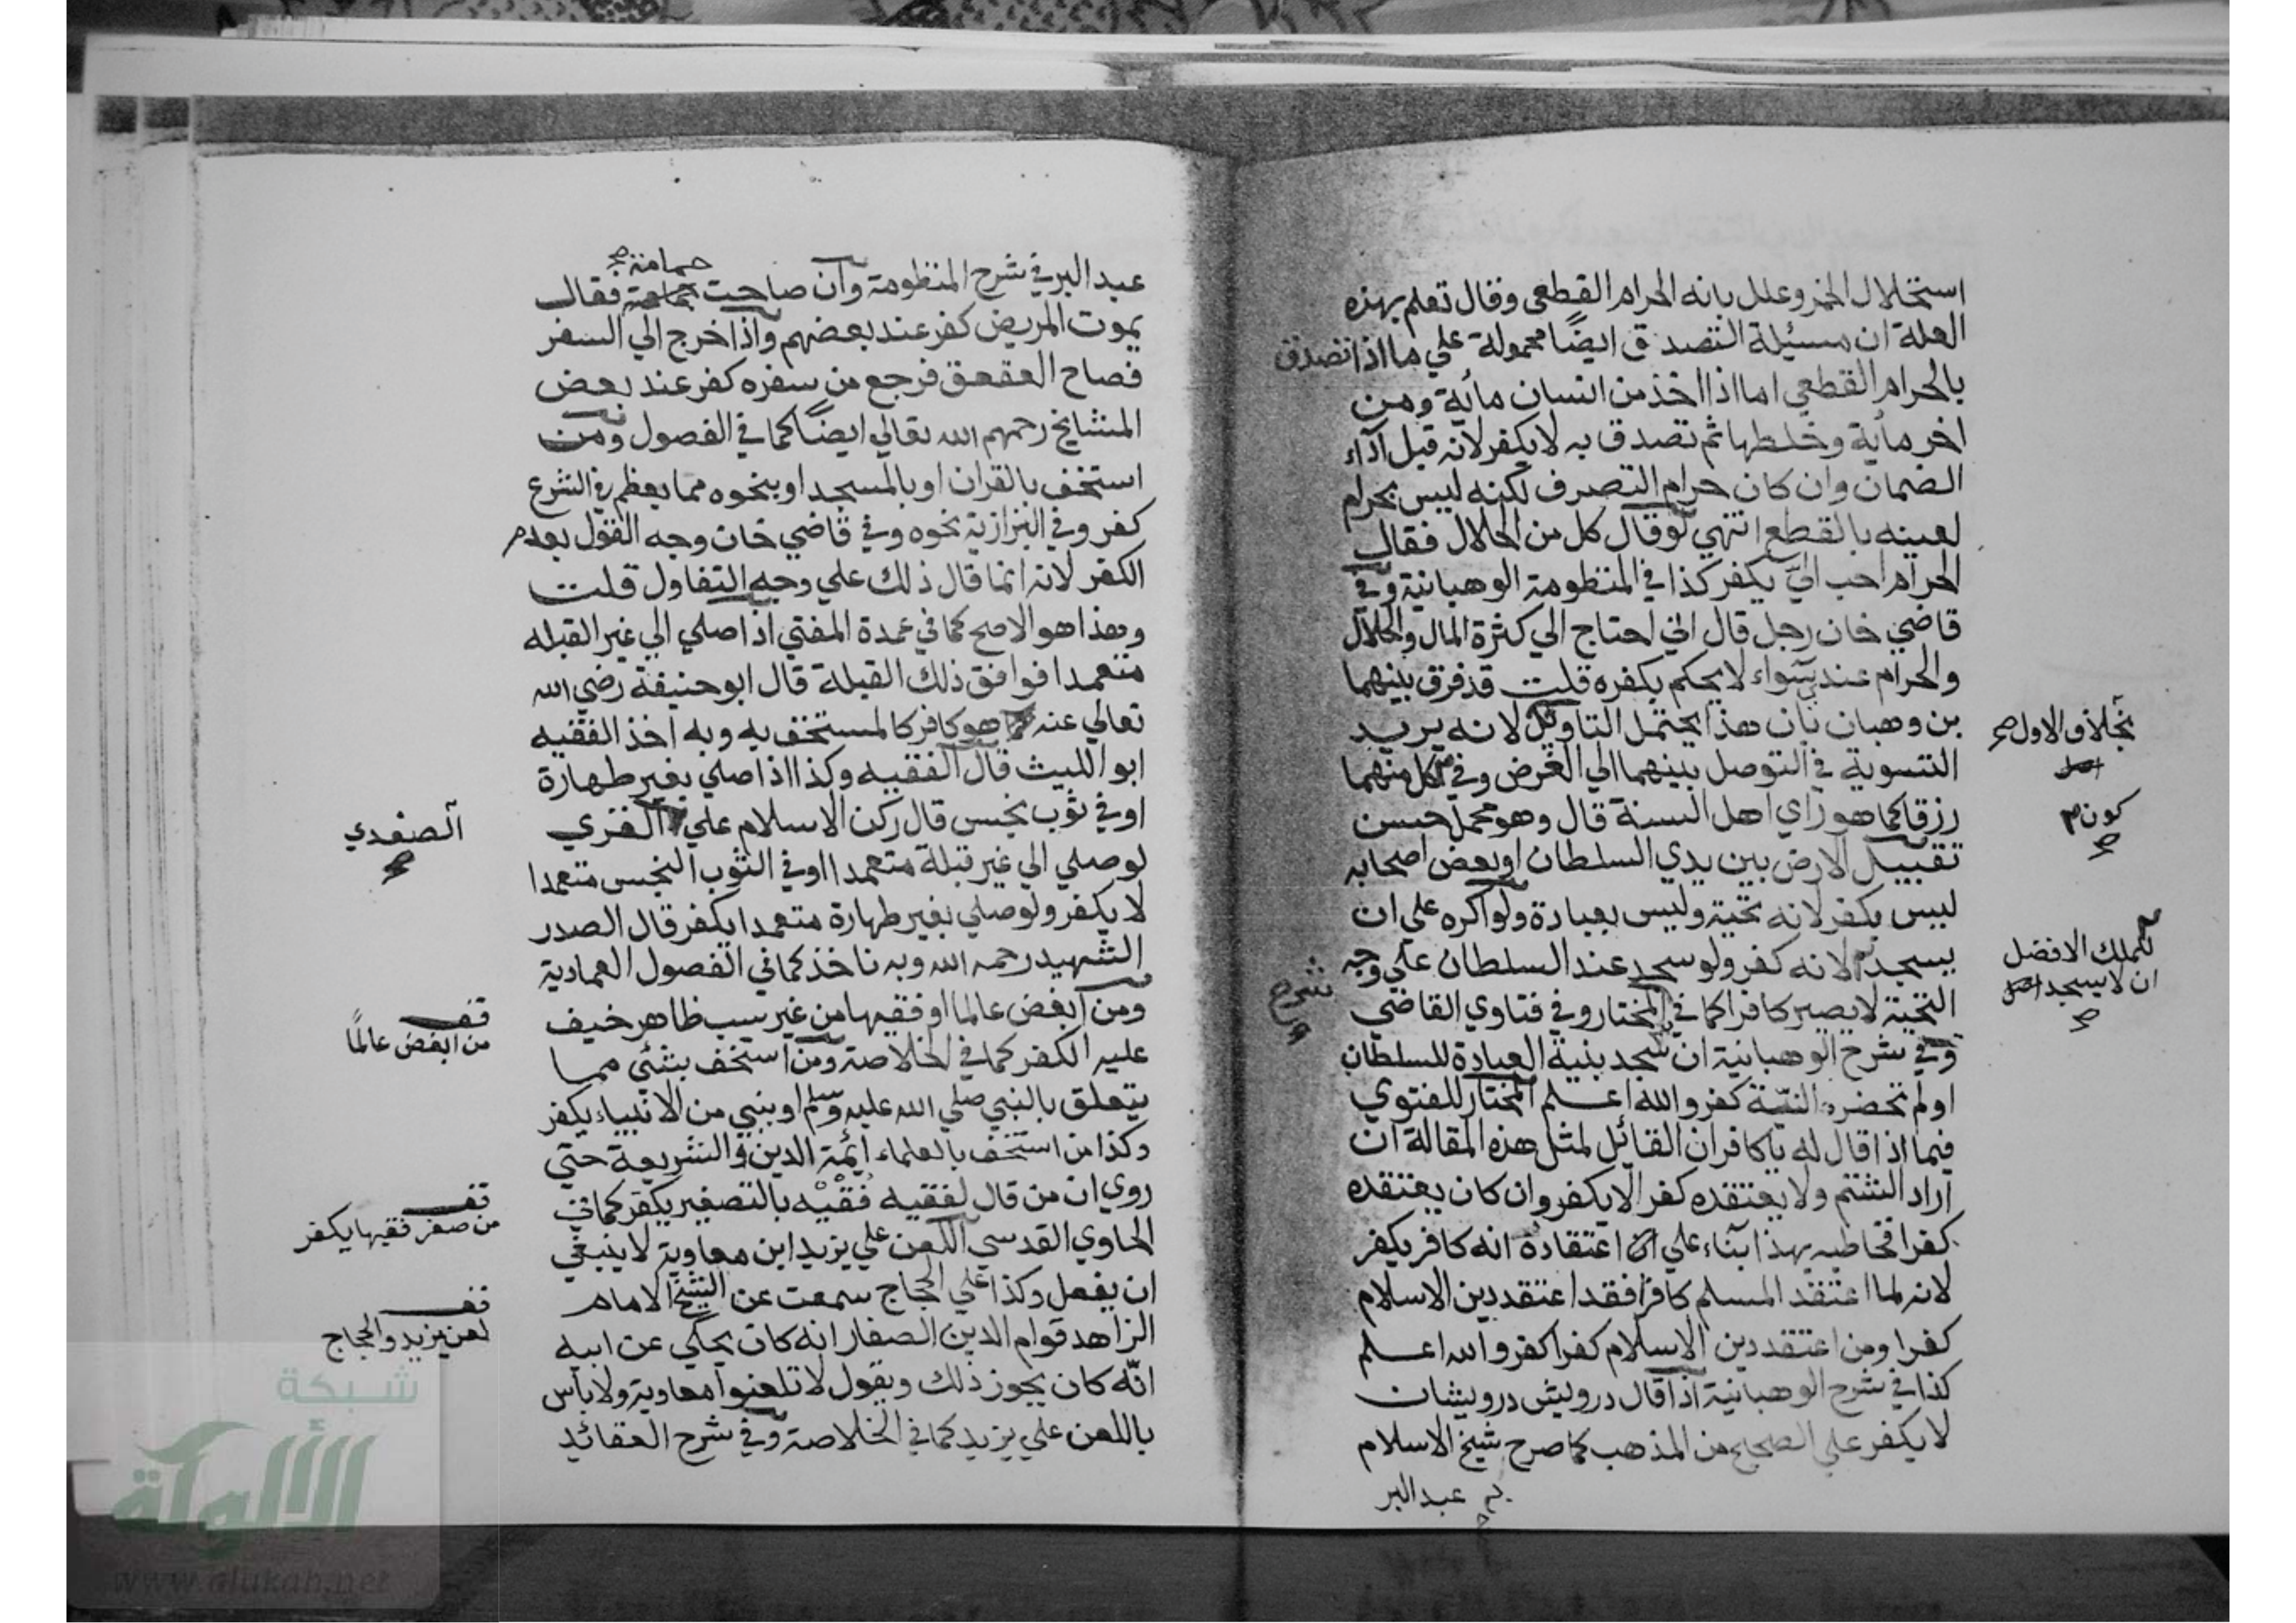 استحلال الخمر وعلل بانه الحرام القطعي وقال تعلم بهذه
العلة ان مسئلة التصدق ايضًا محمولة علي ما اذا تصدق
بالحرام القطعي اما اذا اخذ من انسان مائة ومن
اخر مائة وخلطها ثم تصدق به لا يكفر لانه قبل اداء
الضمان وان كان حرام التصرف لكنه ليس بحرام
لعينه بالقطع انتهي لو قال كل من الحلال فقال
الحرام احب اليّ يكفر كذا في المنظومة الوهبانية وفي
قاضي خان رجل قال اني احتاج الي كثرة المال والحلال
والحرام عندي سواء لا يحكم بكفره قلت قد فرق بينهما
بن وهبان بان هذا يحتمل التاويل لانه يريد
التسوية في التوصل بينهما الي الغرض وفي كل منهما
رزقا كما هو راي اهل السنة قال وهو محمل حسن
تقبيل الارض بين يدي السلطان او بعض اصحابه
ليس بكفر لانه تحية وليس بعبادة ولو اكره علي ان
يسجد لانه كفر ولو سجد عند السلطان علي وجه
التحية لا يصير كافرا كما في المختار وفي فتاوي القاضي
وفي شرح الوهبانية ان سجد بنية العبادة للسلطان
او لم تحضره النيّة كفر والله اعلم المختار للفتوي
فيما اذا قال له يا كافر ان القائل لمثل هذه المقالة ان
اراد الشتم ولا يعتقده كفرا لا يكفر وان كان يعتقده
كفرا فخاطبه بهذا بناء علي اعتقاده انه كافر يكفر
لانه لما اعتقد المسلم كافرا فقد اعتقد دين الاسلام
كفرا ومن اعتقد دين الاسلام كفرا كفر والله اعلم
كذا في شرح الوهبانية اذا قال درويش درويشان
لا يكفر علي الصحيح من المذهب كما صرح شيخ الاسلام
عبد البر
بخلاف الاول صح
اصل
كون
صح
للملك الافضل
ان لا يسجد اصل
صح
شرح
عبد البر في شرح المنظومة وان صاحت حمامة فقال
يموت المريض كفر عند بعضهم واذا خرج الي السفر
فصاح العقعق فرجع من سفره كفر عند بعض
المشايخ رحمهم الله تعالي ايضًا كما في الفصول ومن
استخف بالقران او بالمسجد او بنحوه مما يعظم في الشرع
كفر وفي البزازية نحوه وفي قاضي خان وجه القول بعدم
الكفر لانه انما قال ذلك علي وجه التفاول قلت
وهذا هو الاصح كما في عمدة المفتي اذا صلي الي غير القبلة
متعمدا فوافق ذلك القبلة قال ابو حنيفة رضي الله
تعالي عنه هو كافر كالمستخف به وبه اخذ الفقيه
ابو الليث قال الفقيه وكذا اذا صلي بغير طهارة
او في ثوب نجس قال ركن الاسلام علي
لو صلي الي غير قبلة متعمدا او في الثوب النجس متعمدا
لا يكفر ولو صلي بغير طهارة متعمدا يكفر قال الصدر
الشهيد رحمه الله وبه ناخذ كما في الفصول العمادية
ومن ابغض عالما او فقيها من غير سبب ظاهر خيف
عليه الكفر كما في الخلاصة ومن استخف بشئي مما
يتعلق بالنبي صلي الله عليه وسلم او بنبي من الانبياء يكفر
وكذا من استخف بالعلماء ائمة الدين والشريعة حتي
روي ان من قال لفقيه فُقَيْه بالتصغير يكفر كما في
الحاوي القدسي اللعن علي يزيد ابن معاوية لا ينبغي
ان يفعل وكذا علي الحجاج سمعت عن الشيخ الامام
الزاهد قوام الدين الصفار انه كان يحكي عن ابيه
انّه كان يجوز ذلك ويقول لا تلعنوا معاوية ولا باس
باللعن علي يزيد كما في الخلاصة وفي شرح العقائد
الصغدي
صح
قف
من ابغض عالمًا
قف
من صغر فقيها يكفر
قف
لعن يزيد والحجاج
شبكة
الألوكة
www.alukah.net